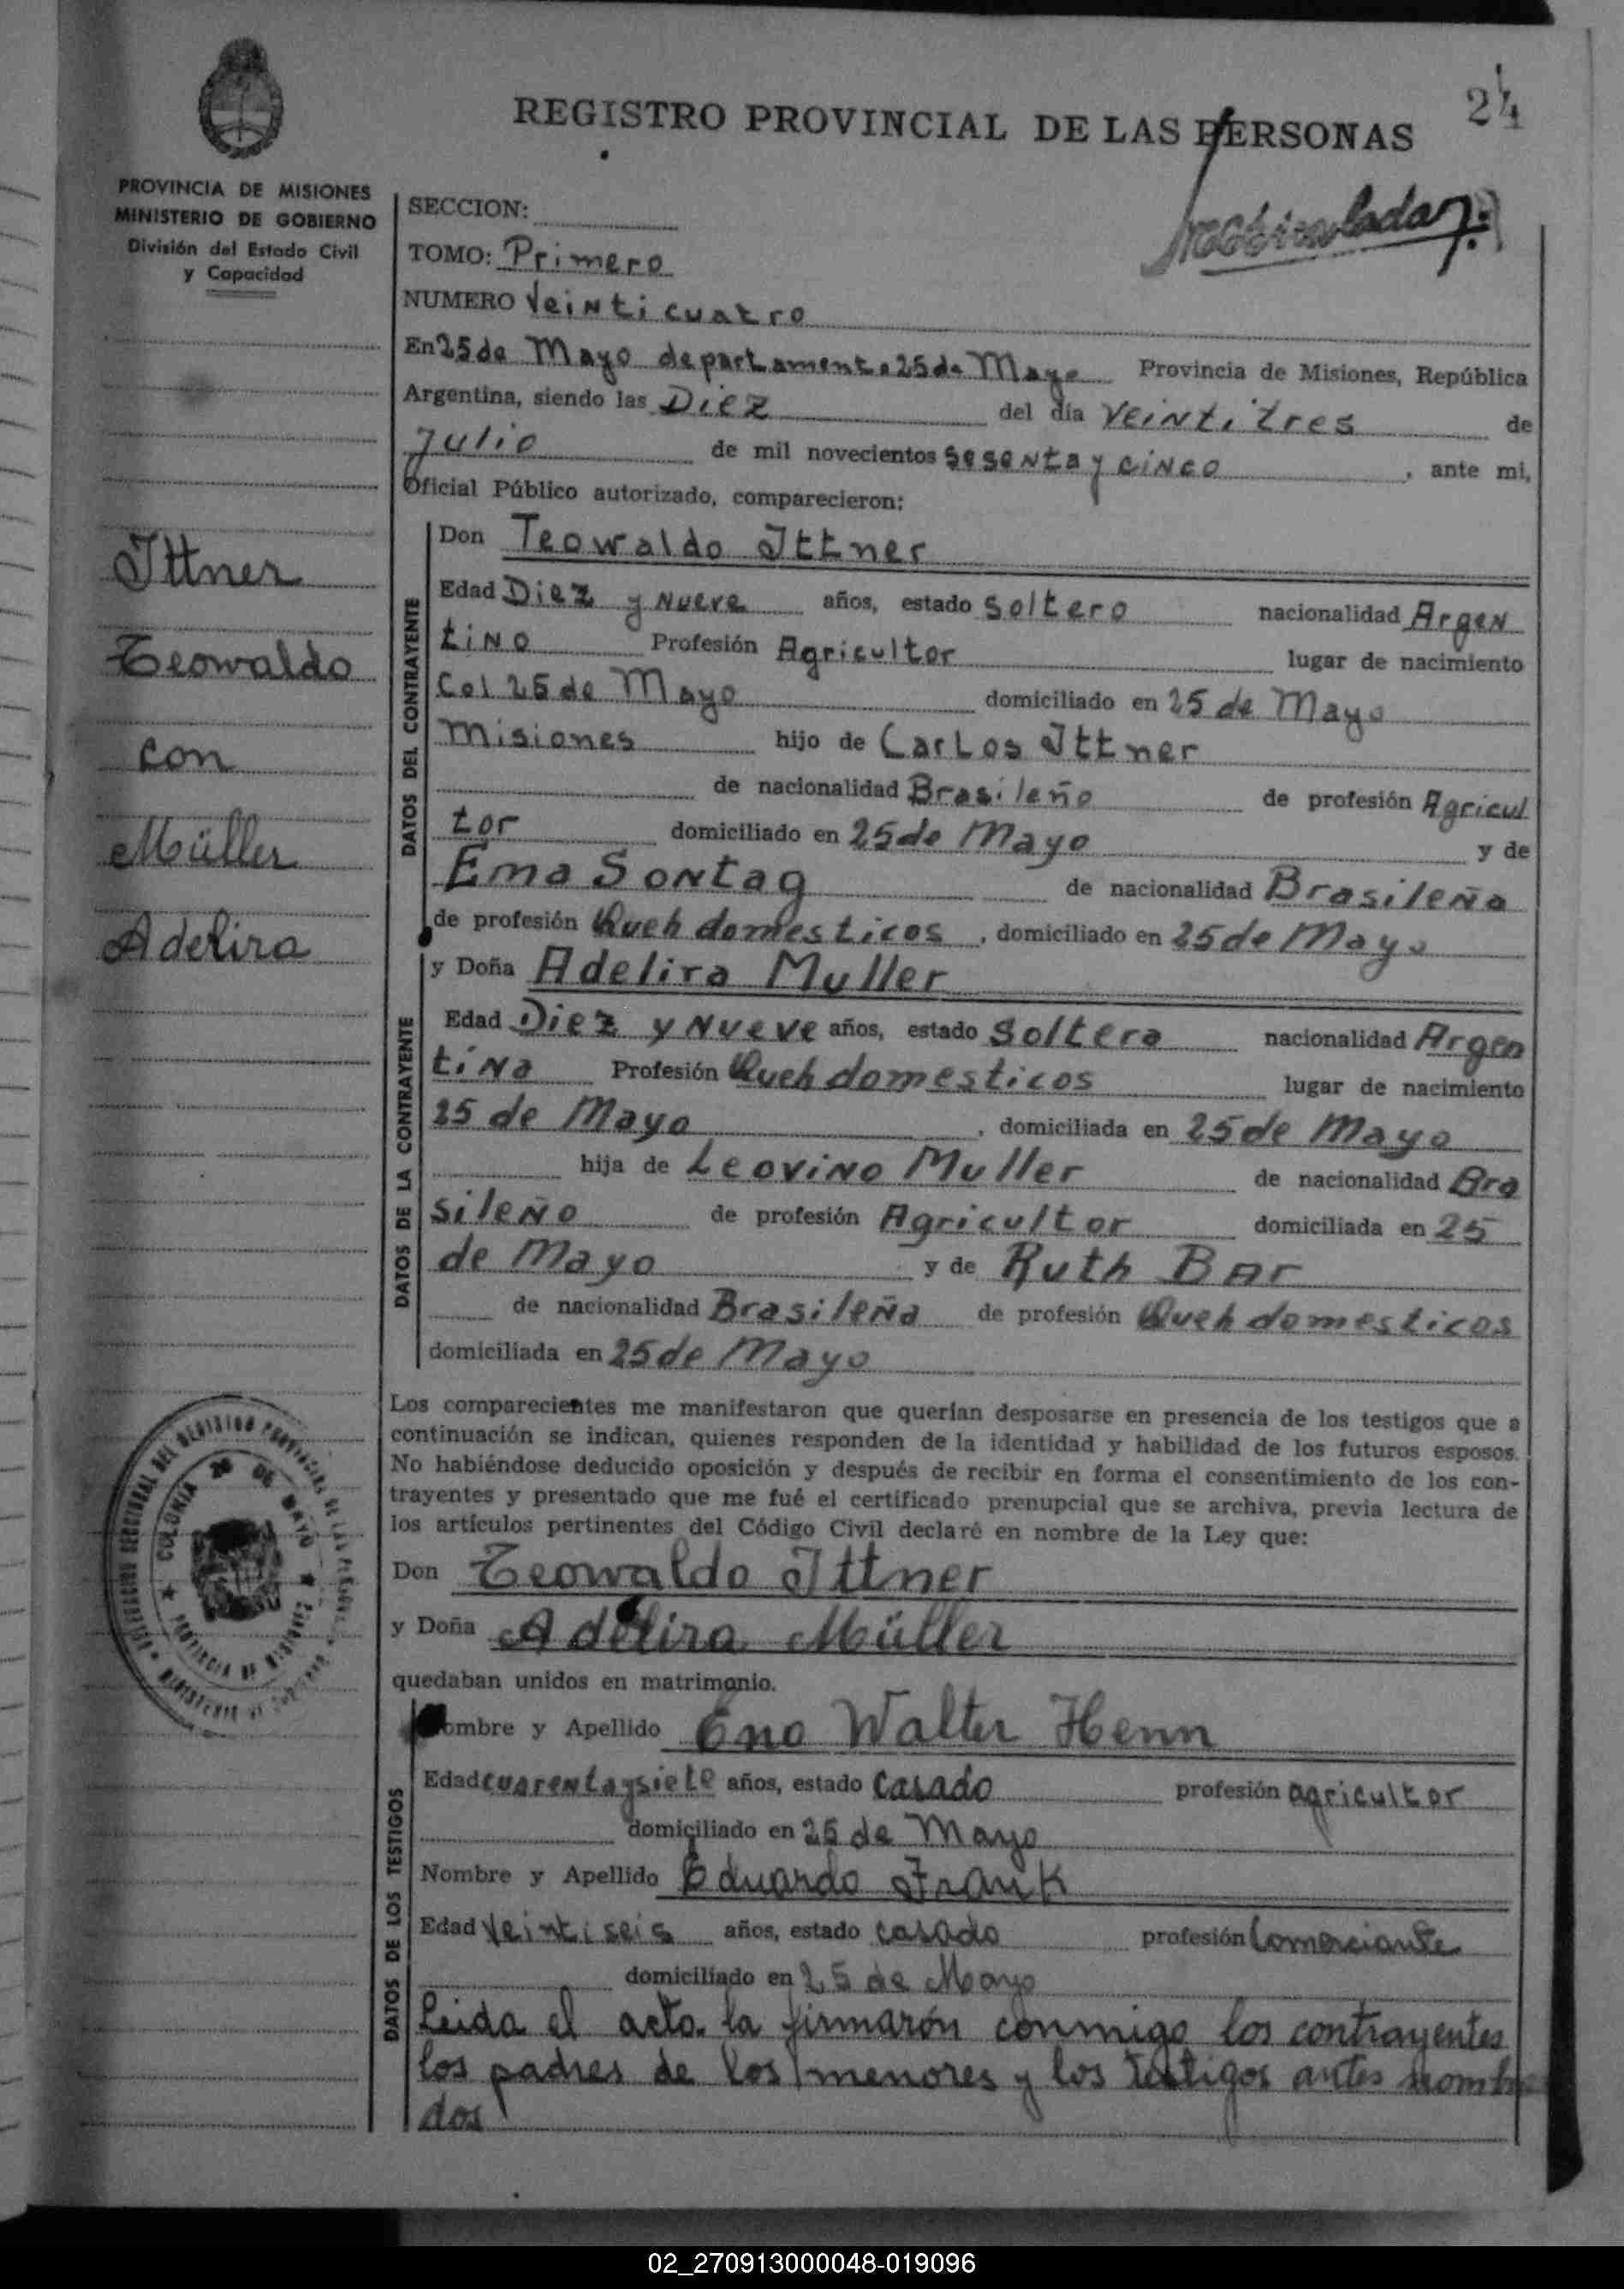 24
REGISTRO PROVINCIAL DE LAS PERSONAS
PROVINCIA DE MISIONES
MINISTERIO DE GOBIERNO
División del Estado Civil
y Capacidad
SECCION:
TOMO: Primero
NUMERO Veinti cuatro
En 25 de Mayo departamento 25 de Mayo Provincia de Misiones, República
Argentina, siendo las Diez del día Veintitres de
Julio de mil novecientos sesenta y cinco, ante mi,
Oficial Público autorizado, comparecieron:
Ittner
Teowaldo
con
Müller
Adelira
DATOS DEL CONTRAYENTE
Don Teowaldo Ittner
Edad Diez y Nueve años, estado Soltero nacionalidad Argen
tino Profesión Agricultor lugar de nacimiento
Col 25 de Mayo domiciliado en 25 de Mayo
Misiones hijo de Carlos Ittner
de nacionalidad Brasileño de profesión Agricul
tor domiciliado en 25 de Mayo y de
Ema Sontag de nacionalidad Brasileña
de profesión Queh domesticos, domiciliado en 25 de Mayo
DATOS DE LA CONTRAYENTE
y Doña Adelira Muller
Edad Diez y Nueve años, estado Soltera nacionalidad Argen
tina Profesión Queh domesticos lugar de nacimiento
25 de Mayo, domiciliada en 25 de Mayo
hija de Leovino Muller de nacionalidad Bra
sileño de profesión Agricultor domiciliada en 25
de Mayo y de Ruth Bar
de nacionalidad Brasileña de profesión Queh domesticos
domiciliada en 25 de Mayo
Los comparecientes me manifestaron que querían desposarse en presencia de los testigos que a
continuación se indican, quienes responden de la identidad y habilidad de los futuros esposos.
No habiéndose deducido oposición y después de recibir en forma el consentimiento de los con-
trayentes y presentado que me fué el certificado prenupcial que se archiva, previa lectura de
los artículos pertinentes del Código Civil declaré en nombre de la Ley que:
COLONIA 25 DE MAYO
PROVINCIA DE MISIONES
Don Teowaldo Ittner
y Doña Adelira Müller
quedaban unidos en matrimonio.
DATOS DE LOS TESTIGOS
Nombre y Apellido Eno Walter Henn
Edad cuarenta y siete años, estado Casado profesión agricultor
domiciliado en 25 de Mayo
Nombre y Apellido Eduardo Frank
Edad Veinti seis años, estado casado profesión Comerciante
domiciliado en 25 de Mayo
Leida el acta. la firmarón conmigo los contrayentes
los padres de los menores y los testigos antes nombra
dos
02_270913000048-019096